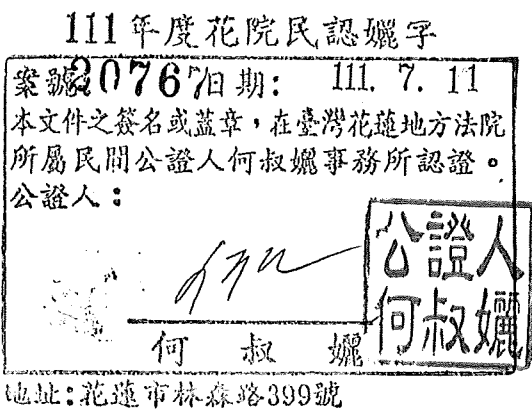 111年度花院民認孋字
案號20767日期:111. 7. 11
本文件之簽名或蓋章，在臺灣花蓮地方法院
所屬民間公證人何叔孋事務所認證。
公證人：
公證人
何叔孋
何 叔 孋
地址:花蓮市林森路399號